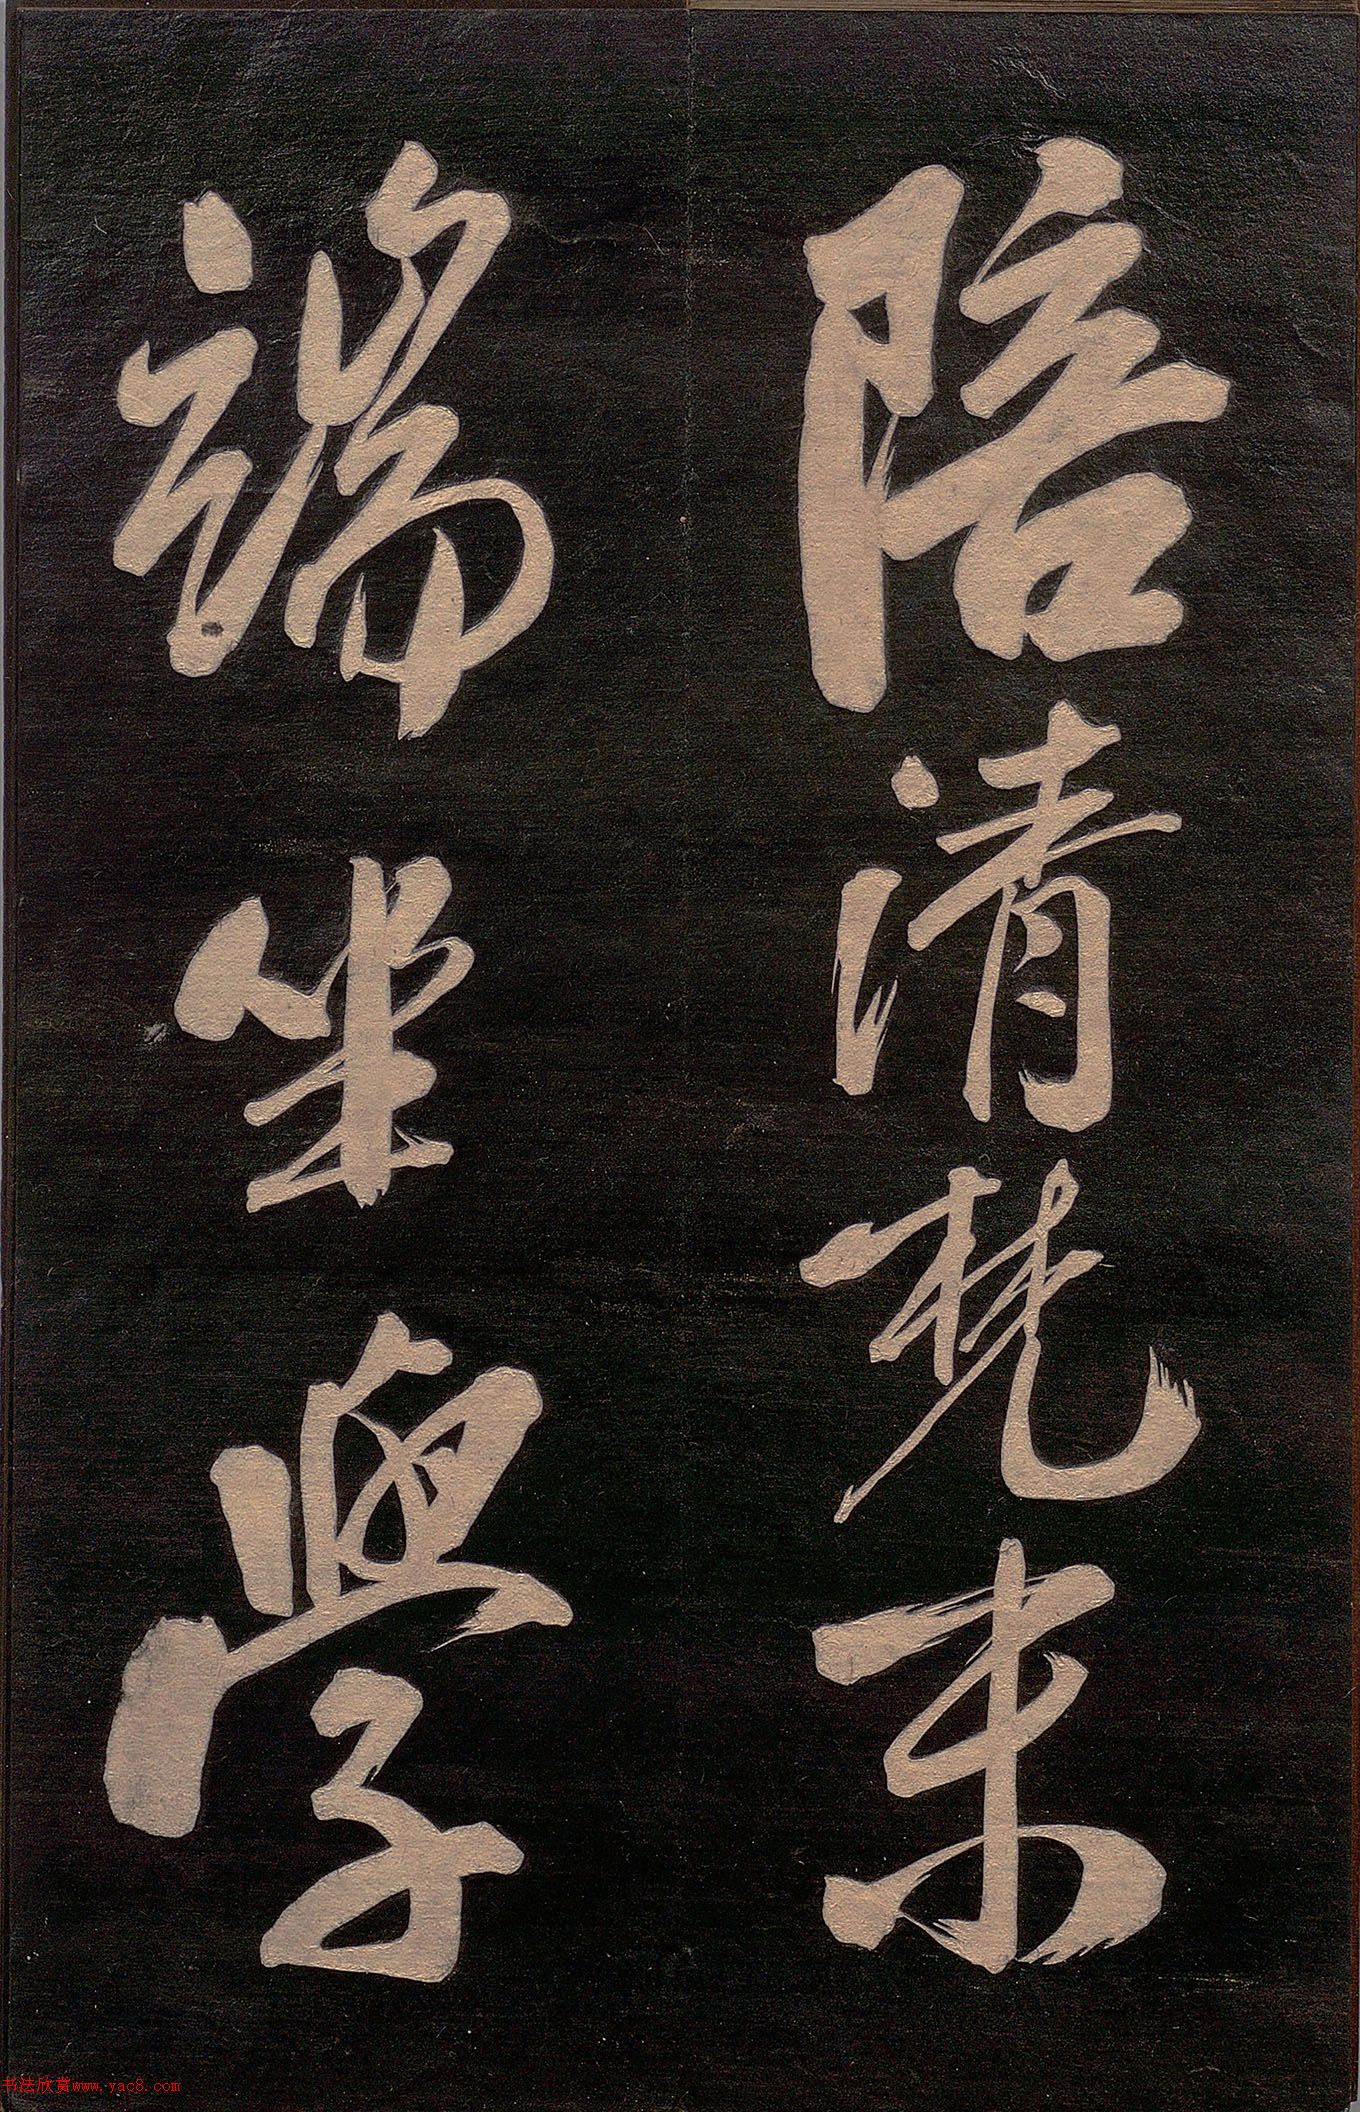 陪清梵末
端坐學
书法欣赏www.yac8.com